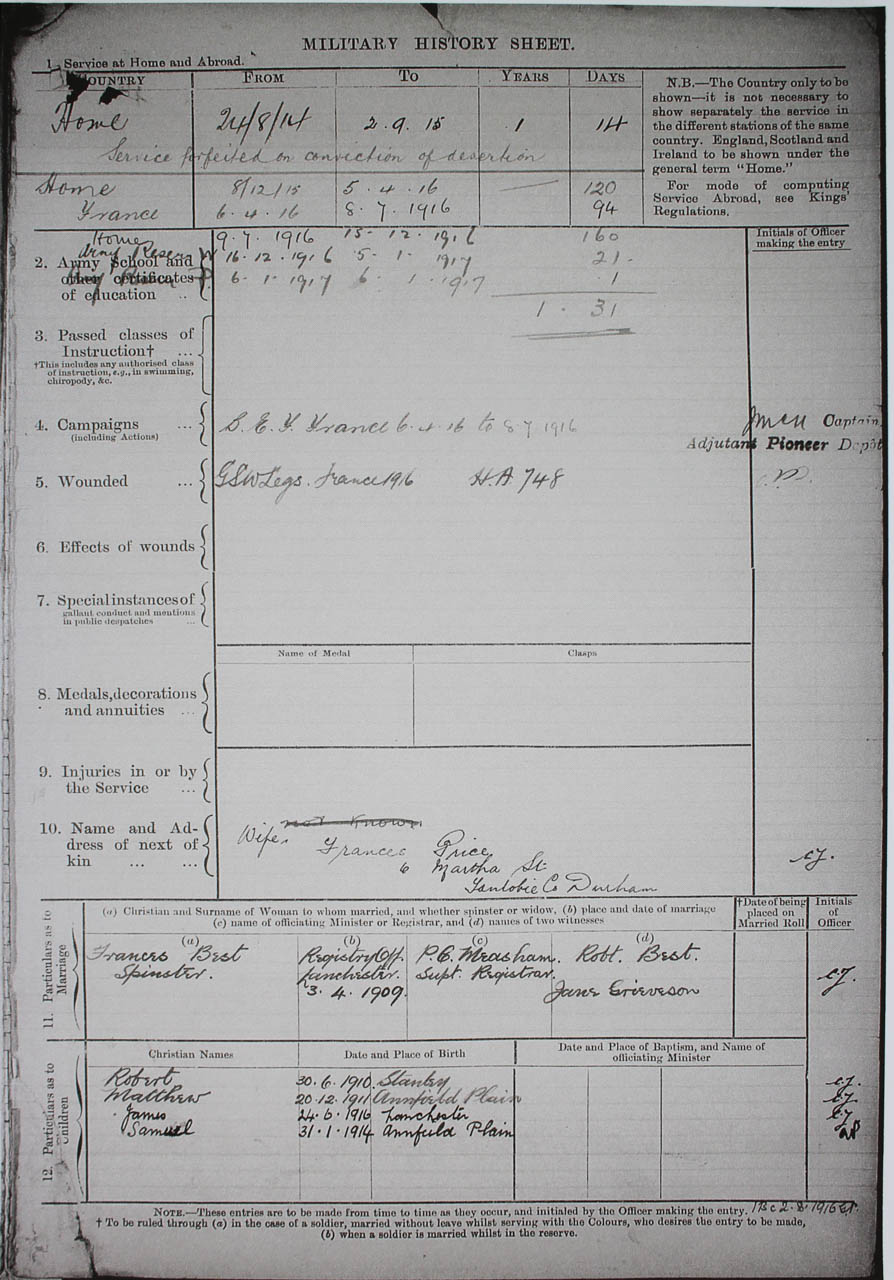 MILITARY HISTORY SHEET.
1. Service at Home and Abroad.
COUNTRY FROM TO YEARS DAYS
Home 24/8/14 2.9.15 1 14
Service forfeited on conviction of desertion
Home 8/12/15 5.4.16 — 120
France 6.4.16 8.7.1916 94
N.B.—The Country only to be
shown—it is not necessary to
show separately the service in
the different stations of the same
country. England, Scotland and
Ireland to be shown under the
general term “Home.”
For mode of computing
Service Abroad, see Kings'
Regulations.
Home 9.7.1916 15.12.1916 160
Army Reserve W 16.12.1916 5.1.1917 21.
P 6.1.1917 6.1.1917 1
1. 31
Initials of Officer
making the entry
2. Army School and
other certificates
of education ..
3. Passed classes of
Instruction† ...
†This includes any authorised class
of instruction, e.g., in swimming,
chiropody, &c.
4. Campaigns ...
(including Actions)
B.E.F. France 6.4.16 to 8.7.1916
Captain
Adjutant Pioneer Depôt
5. Wounded ...
GSW Legs. France 1916 H.A 748
6. Effects of wounds
7. Special instances of
gallant conduct and mentions
in public despatches ...
Name of Medal Clasps
8. Medals, decorations
and annuities ...
9. Injuries in or by
the Service ...
10. Name and Ad-
dress of next of
kin ... ...
not known
Wife. Frances Price
6 Martha St
Tantobie Co Durham
cJ.
11. Particulars as to
Marriage
(a) Christian and Surname of Woman to whom married, and whether spinster or widow, (b) place and date of marriage
(c) name of officiating Minister or Registrar, and (d) names of two witnesses
†Date of being
placed on
Married Roll
Initials
of
Officer
(a) (b) (c) (d)
Frances Best Registry Off. P.C. Measham. Robt. Best.
Spinster. Lanchester. Supt. Registrar.
3.4.1909. Jane Grieveson
cJ.
12. Particulars as to
Children
Christian Names Date and Place of Birth Date and Place of Baptism, and Name of
officiating Minister
Robert 30.6.1910. Stanley cJ.
Matthew 20.12.1911 Annfield Plain cJ.
James 24.6.1916 Lanchester cJ
Samuel 31.1.1914 Annfield Plain
NOTE.—These entries are to be made from time to time as they occur, and initialed by the Officer making the entry.
2.8.1916
† To be ruled through (a) in the case of a soldier, married without leave whilst serving with the Colours, who desires the entry to be made,
(b) when a soldier is married whilst in the reserve.